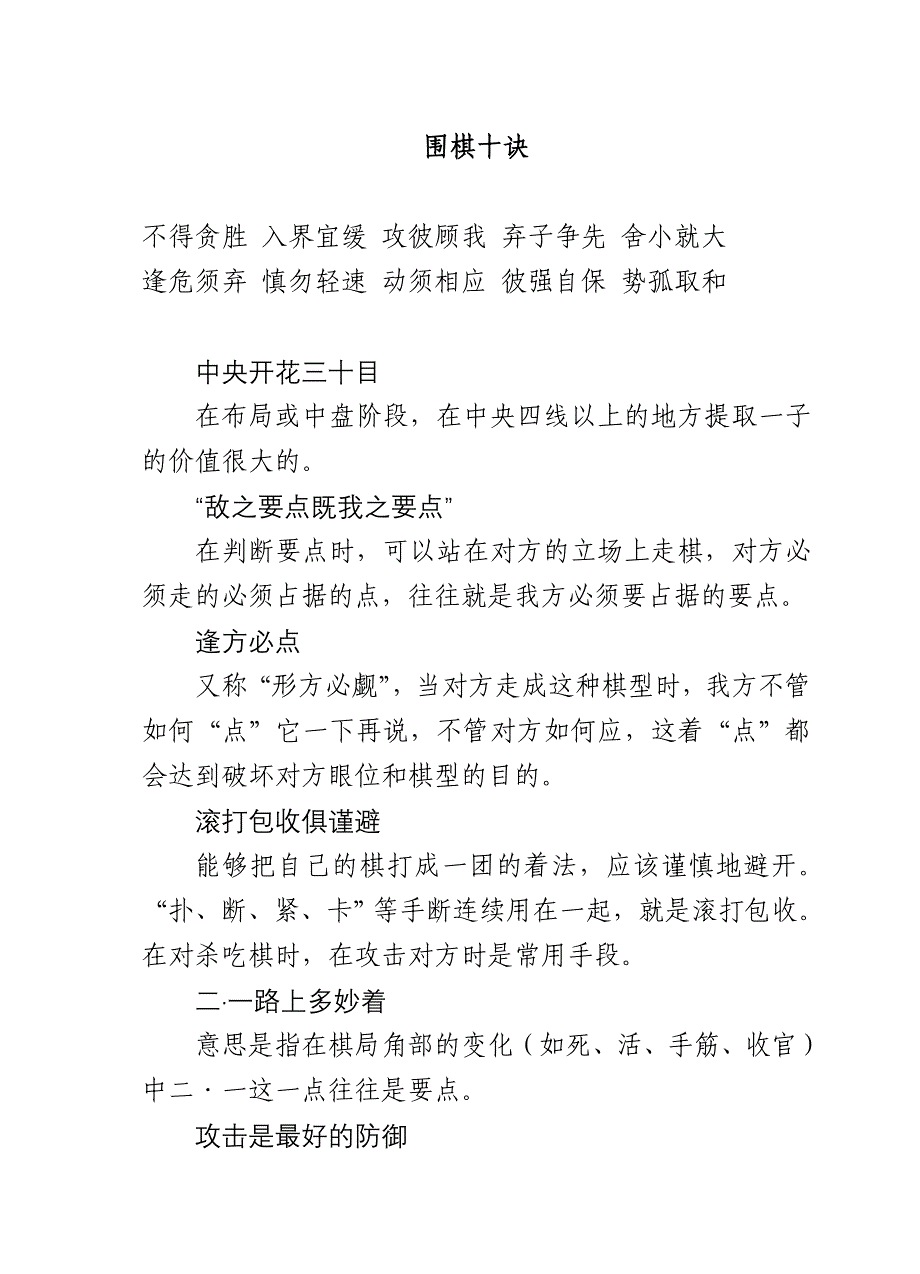 围棋十诀
不得贪胜 入界宜缓 攻彼顾我 弃子争先 舍小就大
逢危须弃 慎勿轻速 动须相应 彼强自保 势孤取和
中央开花三十目
在布局或中盘阶段，在中央四线以上的地方提取一子
的价值很大的。
“敌之要点既我之要点”
在判断要点时，可以站在对方的立场上走棋，对方必
须走的必须占据的点，往往就是我方必须要占据的要点。
逢方必点
又称“形方必觑”，当对方走成这种棋型时，我方不管
如何“点”它一下再说，不管对方如何应，这着“点”都
会达到破坏对方眼位和棋型的目的。
滚打包收俱谨避
能够把自己的棋打成一团的着法，应该谨慎地避开。
“扑、断、紧、卡”等手断连续用在一起，就是滚打包收。
在对杀吃棋时，在攻击对方时是常用手段。
二·一路上多妙着
意思是指在棋局角部的变化（如死、活、手筋、收官）
中二·一这一点往往是要点。
攻击是最好的防御